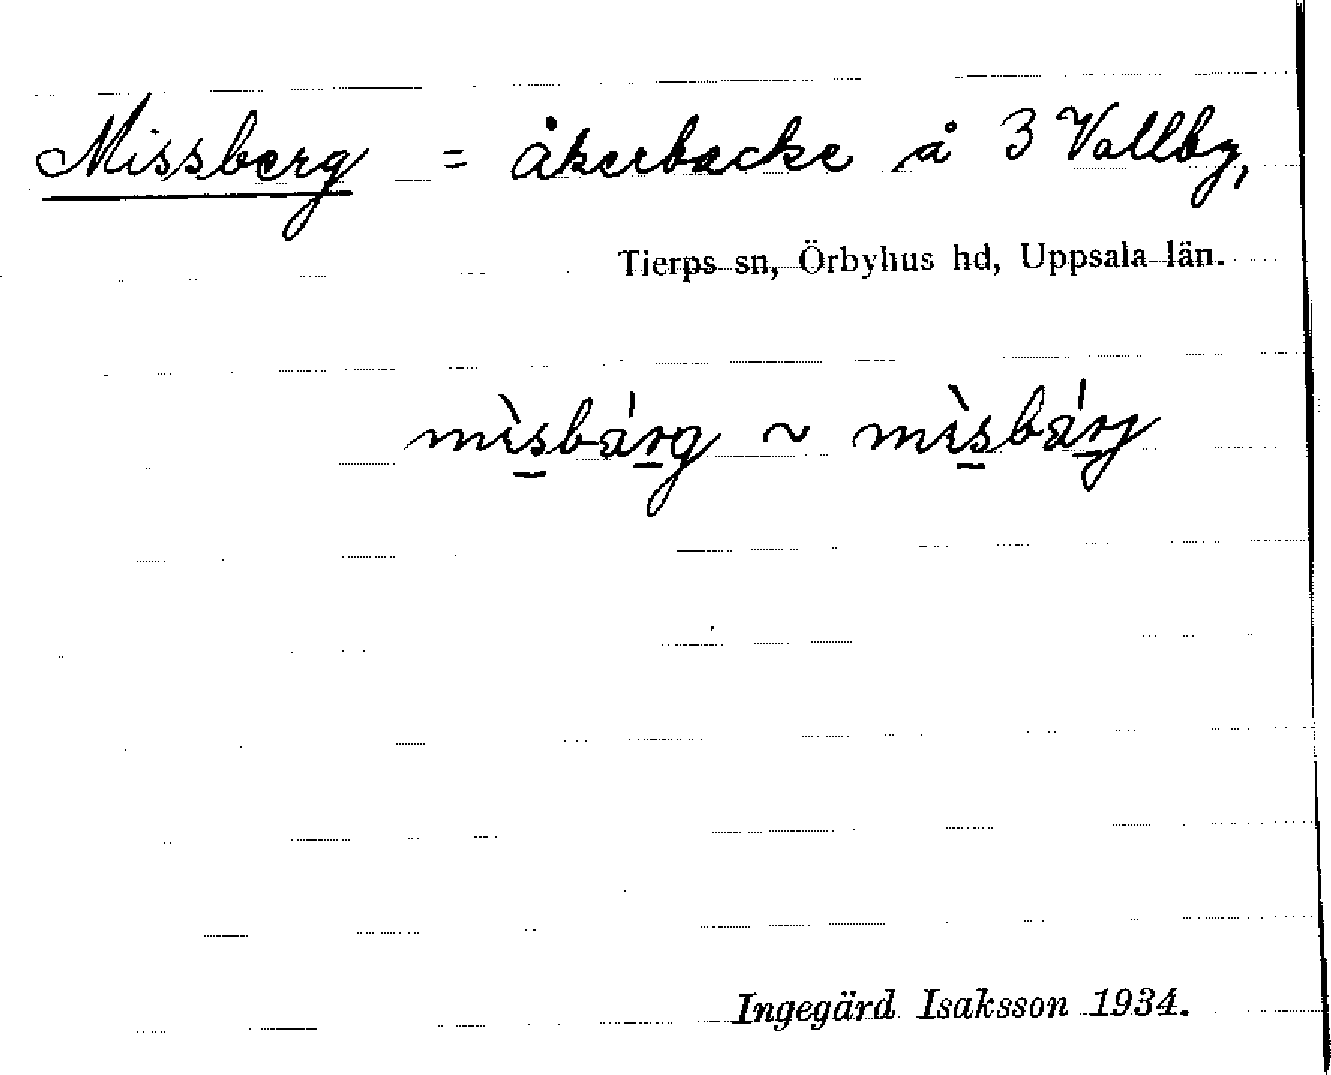 Missberg = åkerbacke å 3 Vallby,
Tierps sn, Örbyhus hd, Uppsala län.
mı̀s̲bár̲g ~ mı̀s̲bár̲j
Ingegärd Isaksson 1934.